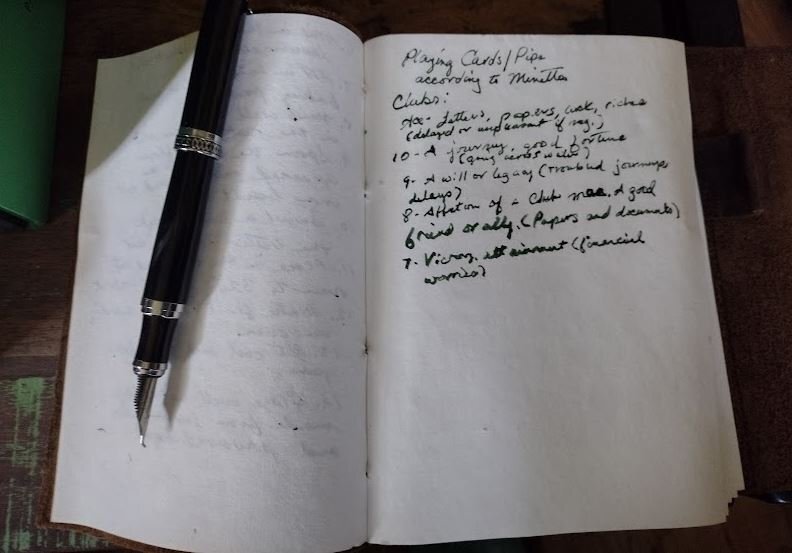 Playing Cards/Pips
according to Minetta
Clubs:
Ace- Letters, papers, luck, riches
(delayed or unpleasant if neg.)
10- A journey, good fortune
(going across water)
9- A will or legacy (troubled journeys
delays)
8- Affection of a Clubs man. A good
friend or ally. (Papers and documents)
7- Victory, attainment (financial
worries)